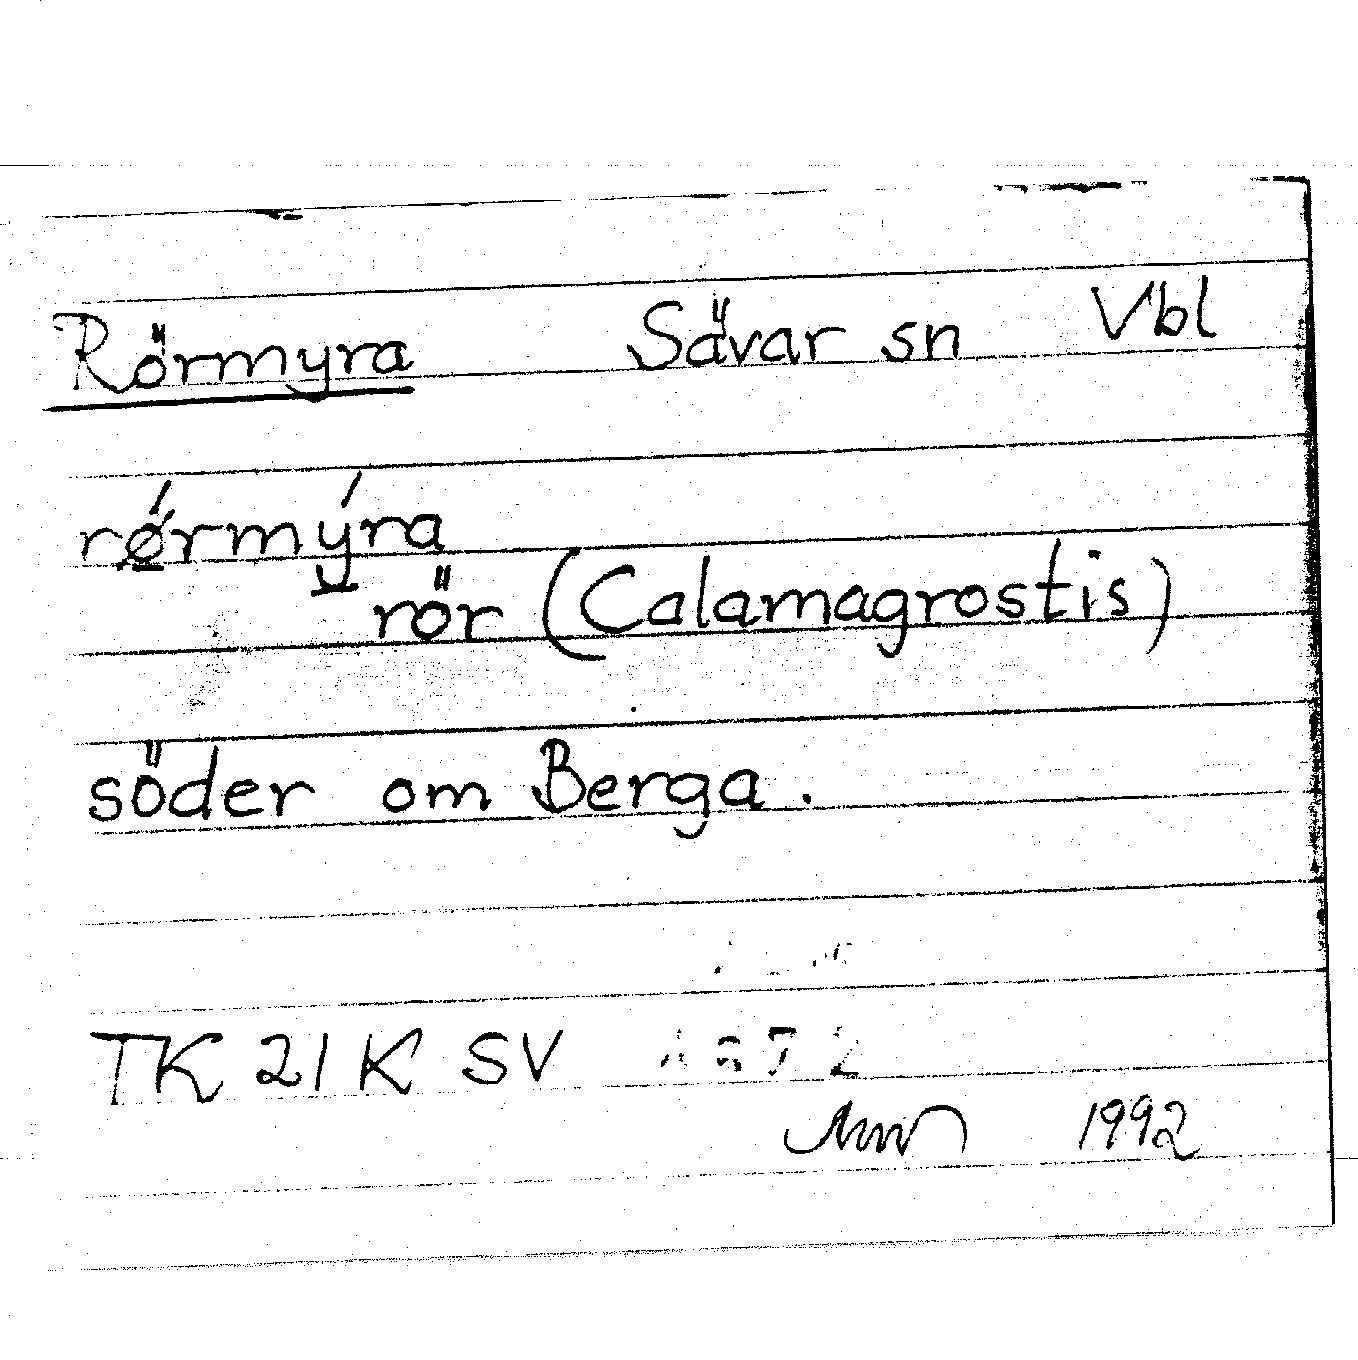 Rörmyra Sävar sn Vbl
rǿ̱rmý̱ra
rör (Calamagrostis)
söder om Berga.
TK 21 K SV
1992